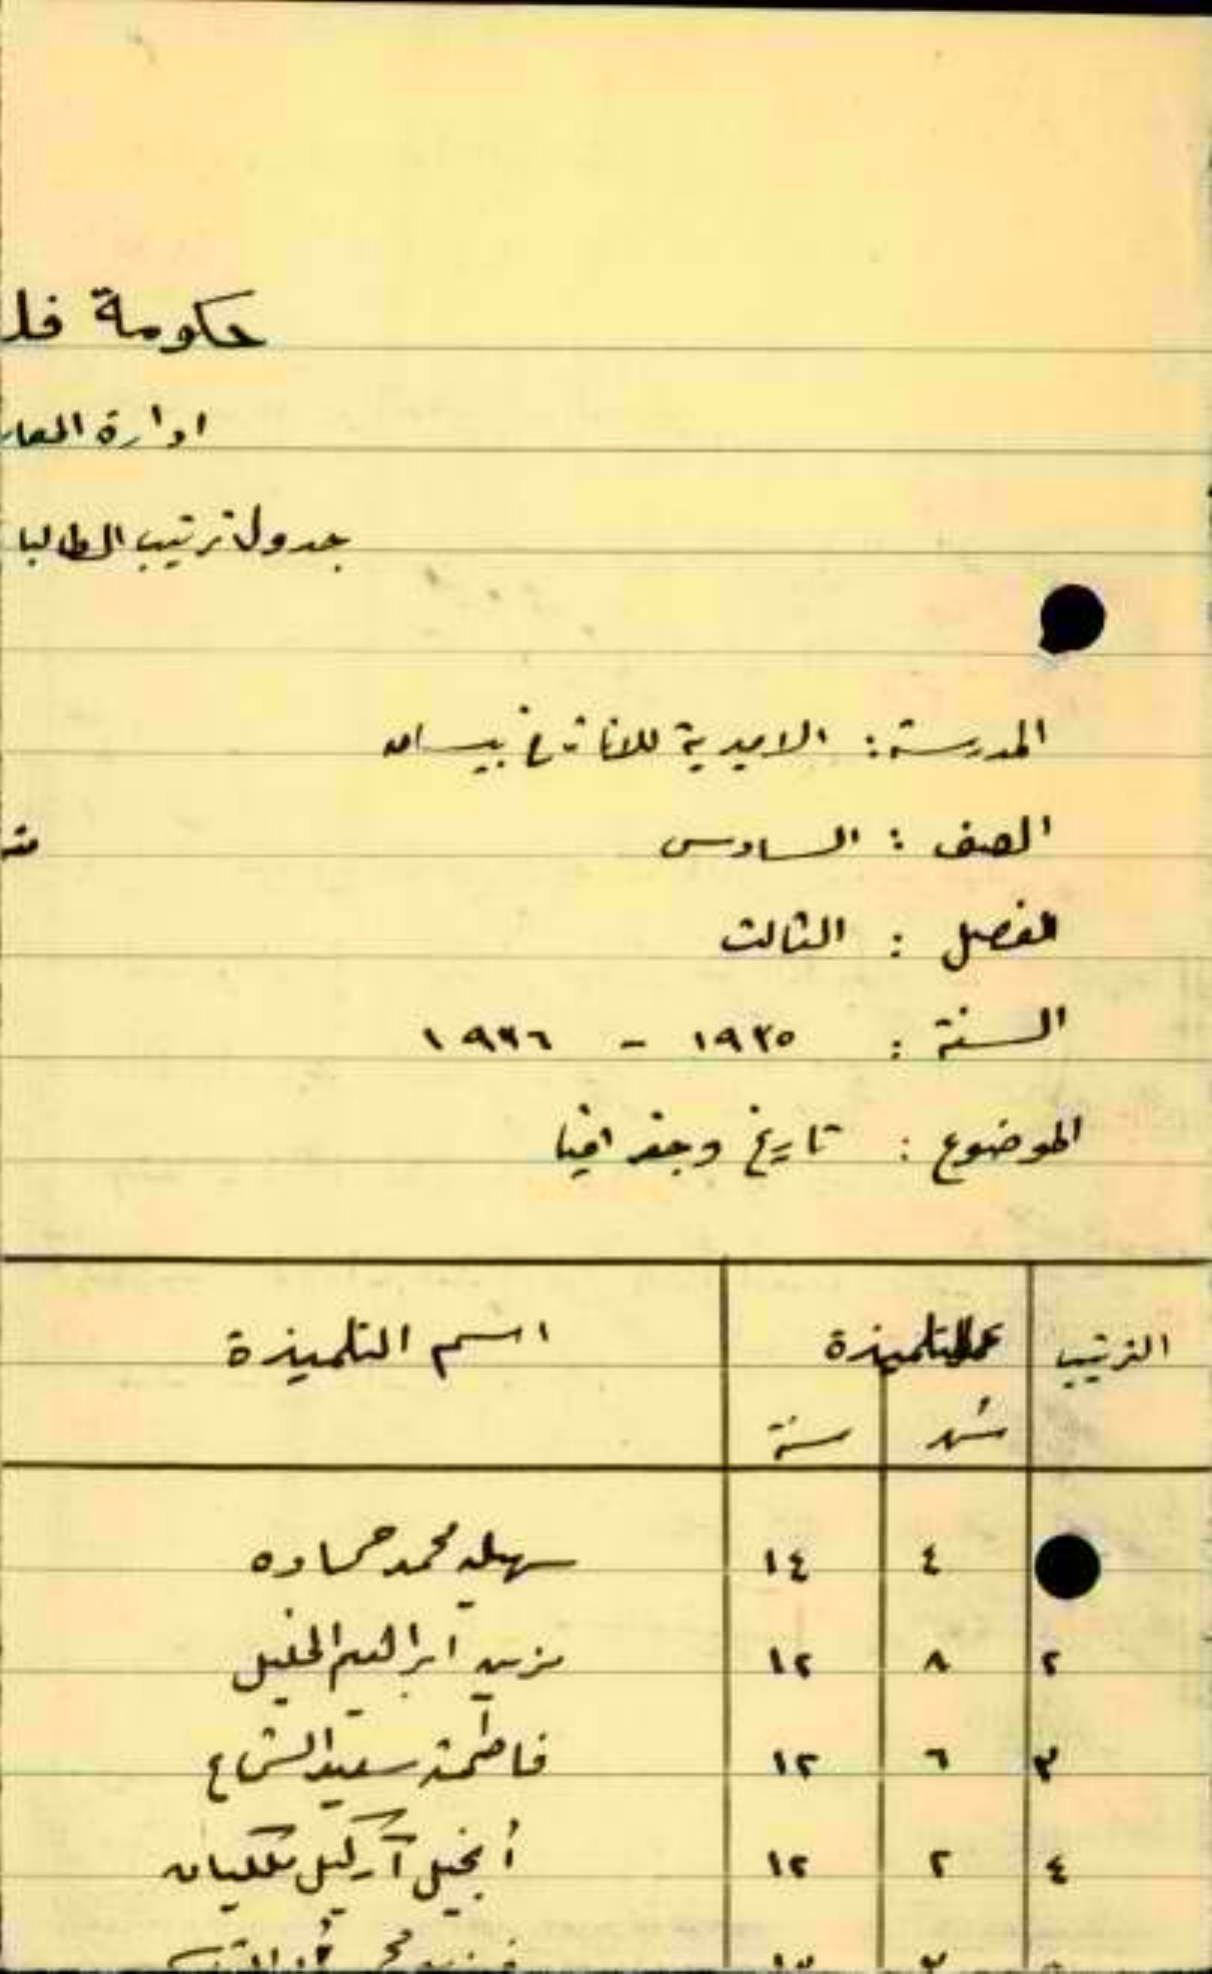 حكومة فلـ
ادارة المعار
جدول ترتيب الطالبا
المدرسة : الاميرية للاناث في بيسان
الصف : السادس
الفصل : الثالث
السنة : ١٩٣٥ - ١٩٣٦
الموضوع : تاريخ وجغرافيا
الترتيب عمر التلميذة اسم التلميذة
شهر سنة
٤ ١٤ سهيله محمد حماده
٢ ٨ ١٢ ابراهيم الخليل
٣ ٦ ١٢ فاطمة سعيد الشماع
٤ ٢ ١٢ أنجيل آركيل ملكيان